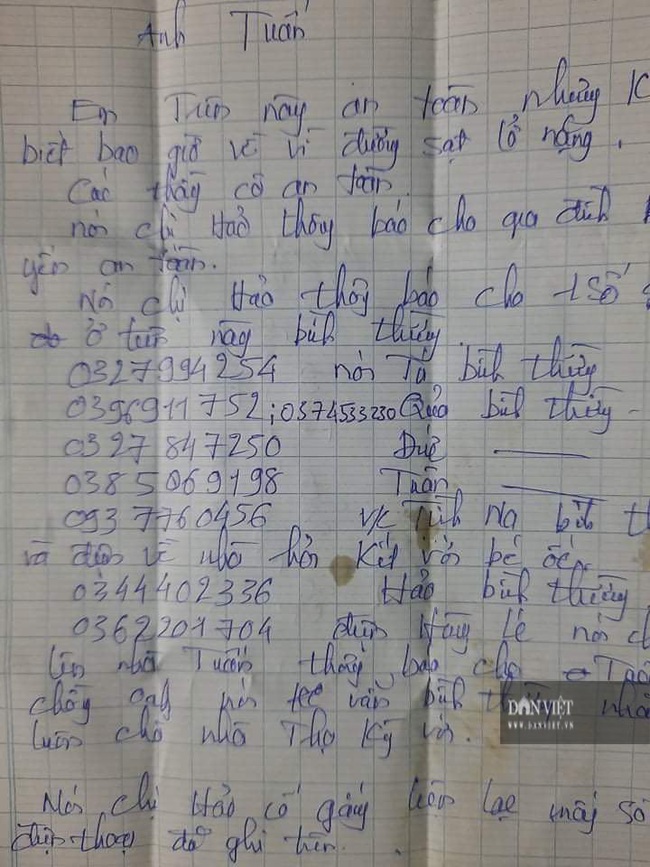 Anh Tuấn
Em Trên này an toàn nhưng K
biết bao giờ về vì đường sạt lở nặng.
Các thầy cô an toàn.
nói chị Hảo thông báo cho gia đình
yên an toàn.
Nói chị Hảo thông báo cho 1 số
ở trên này bình thường.
0327994254 nói Tá bình thường
0396911752; 0374533230 Quả bình thường -
0327847250 Đức ——
0385069198 Tuấn ——
0937760456 vk Tỉnh Na bình th
và điện về nhà hỏi Kết với bé ốc
0344402336 Hảo bình thường
0362201704 điện Hùng Lê nói ch
lên nhà Tuấn thông báo cho
chồng anh nói vẫn bình nhà
luôn cho nhà Thọ Kỳ với.
DÂN VIỆT
WWW.DANVIET.VN
Nói chị Hảo cố gắng liên lạc mấy số
điện thoại đã ghi trên.